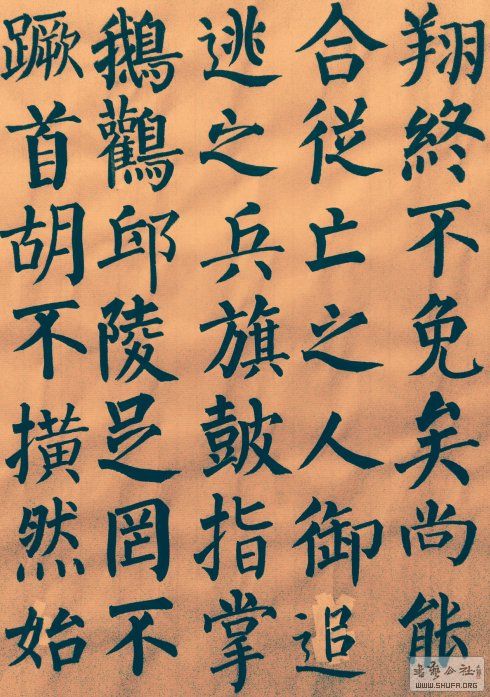 翔終不免矣尚能
合従亡之人御追
逃之兵旗鼓指掌
鵝鸛邱陵足罔不
蹶首胡不撗然始
書法公社
WWW.SHUFA.ORG